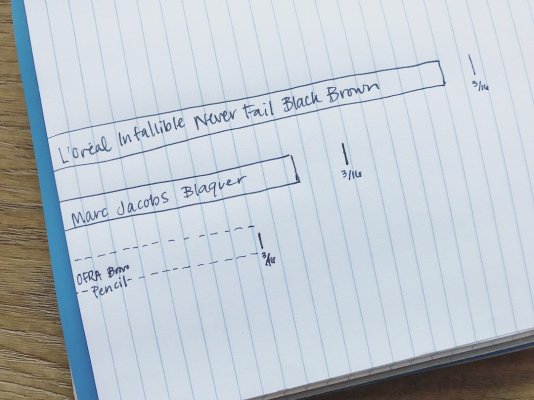 L'oréal Infallible Never Fail Black Brown
3/16
Marc Jacobs Blaquer
3/16
OFRA Brow
Pencil
3/16